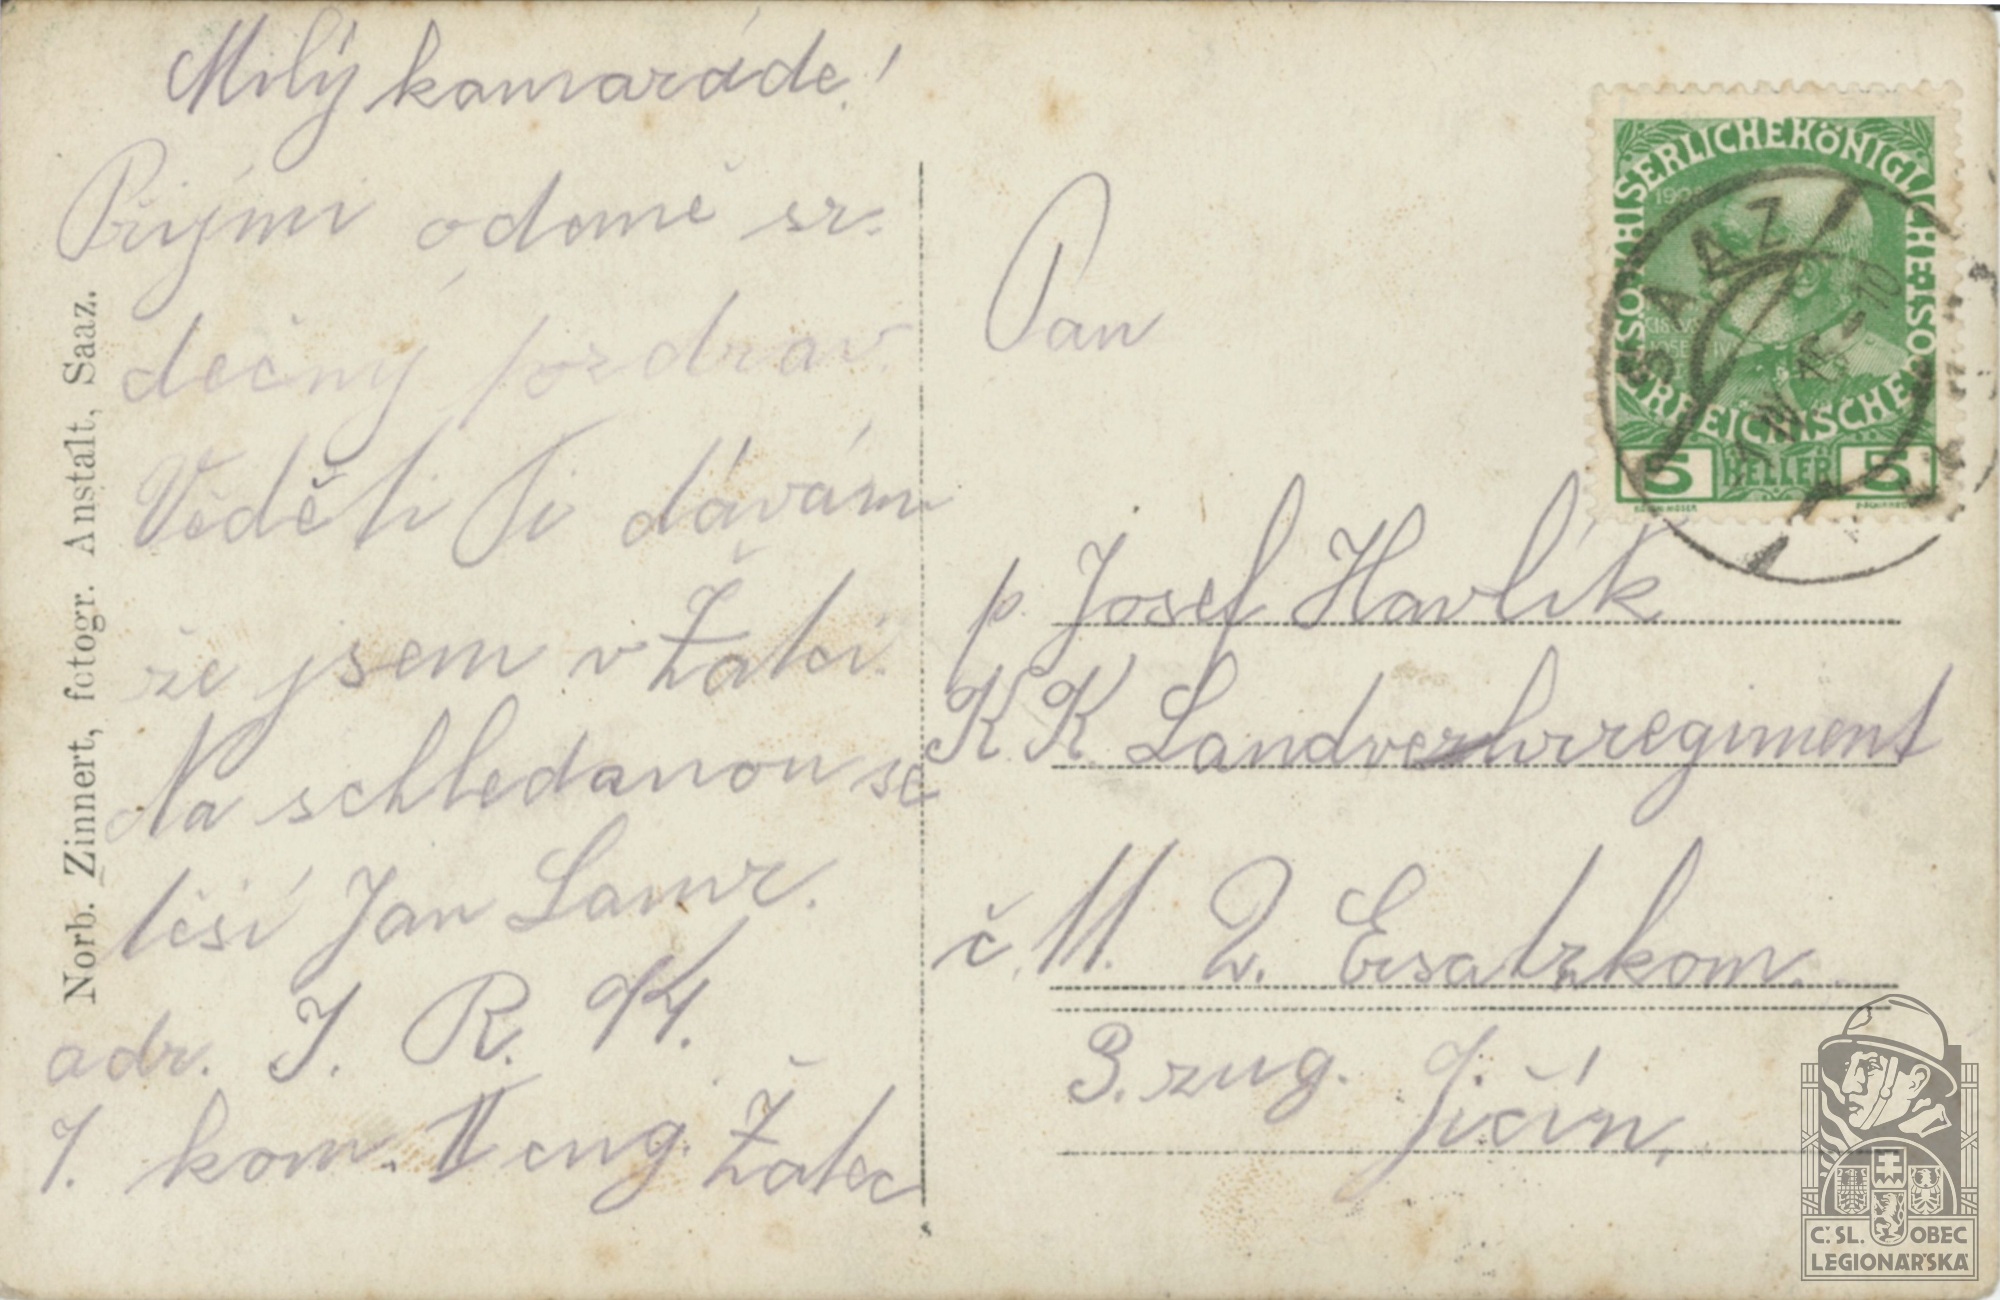 Milý kamaráde!
Přijmi odemě sr-
dečný pozdrav.
Věděti Ti dávám
že jsem v Žatci.
Na schledanou se
těší Jan Lamr.
adr. I. R. 94.
I. kom. II cug. Žatec
Norb. Zinnert, fotogr. Anstalt, Saaz.
Pan
p. Josef Havlík
K K Landverhrregiment
č. 11. 2. Ersatzkom.
3. zug. Jičín,
KAISERLICHE KÖNIGLICHE
ÖSTERREICHISCHE
5 HELLER 5
SAAZ
Č.SL. OBEC
LEGIONÁŘSKÁ